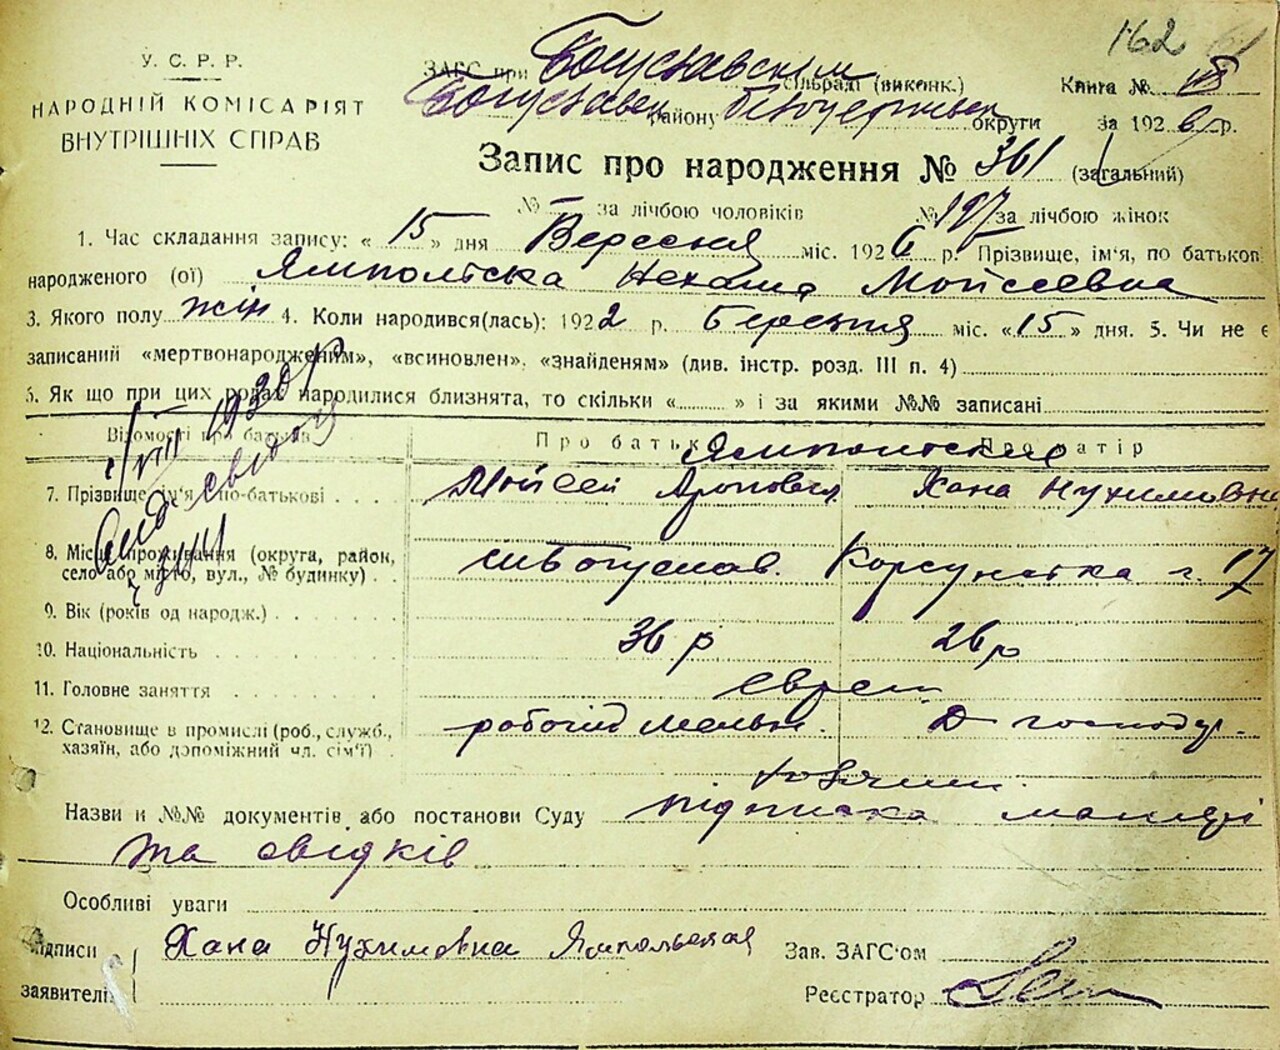 162
У. С. Р. Р.
НАРОДНІЙ КОМІСАРІЯТ
ВНУТРІШНІХ СПРАВ
ЗАГС при Богуславском сільраді (виконк.) Книга №
Богуславськ району Білоцерківськ округи за 1926 р.
Запис про народження № 361 (загальний)
№ – за лічбою чоловіків № 197 за лічбою жінок
1. Час складання запису: «15» дня Вересня міс. 1926 р. Прізвище, ім'я, по батькові
народженого (ої) Ямпольска Нехама Мойсеевна
3. Якого полу жін 4. Коли народився(лась): 1922 р. Березня міс. «15» дня. 5. Чи не є
записаний «мертвонародженим», «всиновлен», «знайденям» (див. інстр. розд. III п. 4)
6. Як що при цих родах народилися близнята, то скільки «......» і за якими №№ записані
1/VIII 1930 р
Відомості про батьків Про батька Про матір
Ямпольские
7. Прізвище ім'я по-батькові Мойсей Аронович Хана Нухимовна
8. Місце проживання (округа, район, село або місто, вул., № будинку) м. Богуслав. Корсунська 17
9. Вік (років од народж.) 36 р 26 р
10. Національність евреи
11. Головне заняття
12. Становище в промислі (роб., служб., хазяїн, або допоміжний чл. сім'ї) робочий мельн. Д господар.
Назви и №№ документів або постанови Суду підписка
та свідків
Особливі уваги
Підписи заявителів Хана Нухимовна Ямпольская
Зав. ЗАГС'ом
Реєстратор